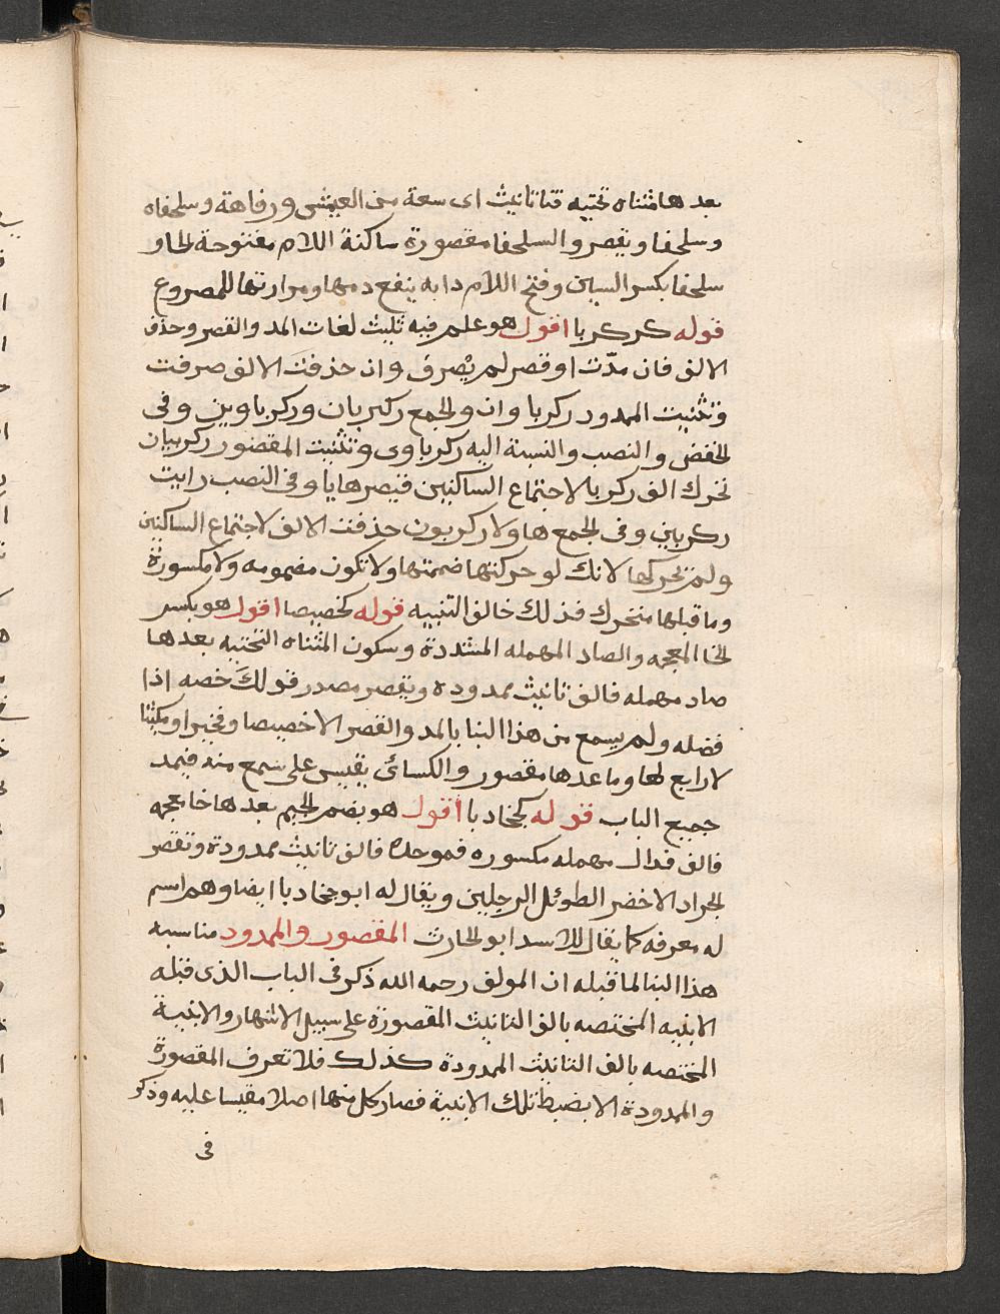 بعدها مثناه تحتيه فتا تانيث اى سعة من العيش ورفاهة وسلحفاه
وسلحفا ويقصر والسلحفا مقصورة ساكنة اللام مفتوحة الحا و
سلحفا بكسر السين وفتح اللام دابه ينفع دمها ومرارتها للمصروع
قوله كزكريا اقول هو علم فيه ثليث لغات المد والقصر وحذف
الالف فان مدّت او قصر لم يُصرف وان حذفتَ الالف صرفت
وتثنيت الممدود زكريا وان والجمع زكريان وزكرياوين وفى
الخفض والنصب والنسبة اليه زكرياوى وتثنيت المقصور زكرييان
تحرك الف زكريا لاجتماع الساكنين فتصرها يا وفى النصب رايت
زكريين وفى الجمع هاولا زكريون حذفت الالف لاجتماع الساكنين
ولم تحركها لانك لو حركتها ضممتها ولا تكون مضمومه ولا مكسورة
وما قبلها متحرك فذلك خالف التثنيه قوله كخصيصا اقول هو بكسر
الخا المعجمه والصاد المهمله المشددة وسكون المثناه التحتيه بعدها
صاد مهمله فالف تانيث ممدوده ويقصر مصدر قولكَ خصه اذا
فضله ولم يسمع من هذا البنا بالمد والقصر الا خصيصا وفخيرا ومكيثا
لا رابع لها وما عدها مقصور والكسائى يقيس على سمع منه فيمد
جميع الباب قوله كجخادبا اقول هو بضم الجيم بعدها خا معجمه
فالف فدال مهمله مكسوره فموحده فالف تانيث ممدودة وتقصر
الجراد الاخضر الطوئل الرجلين ويقال له ابو جخادبا ايضا وهم اسم
له معرفه كما يقال للاسد ابو الحارث المقصور والممدود مناسبه
هذا البنا لما قبله ان المولف رحمه الله ذكر فى الباب الذى قبله
الابنيه المختصه بالف التانيث المقصورة على سبيل الاشتهار والابنية
المختصه بالف التانيث الممدودة كذلك فلا تعرف المقصورة
والممدودة الا بضبط تلك الابنية فصار كل منها اصلا مقيسا عليه وذكر
فى